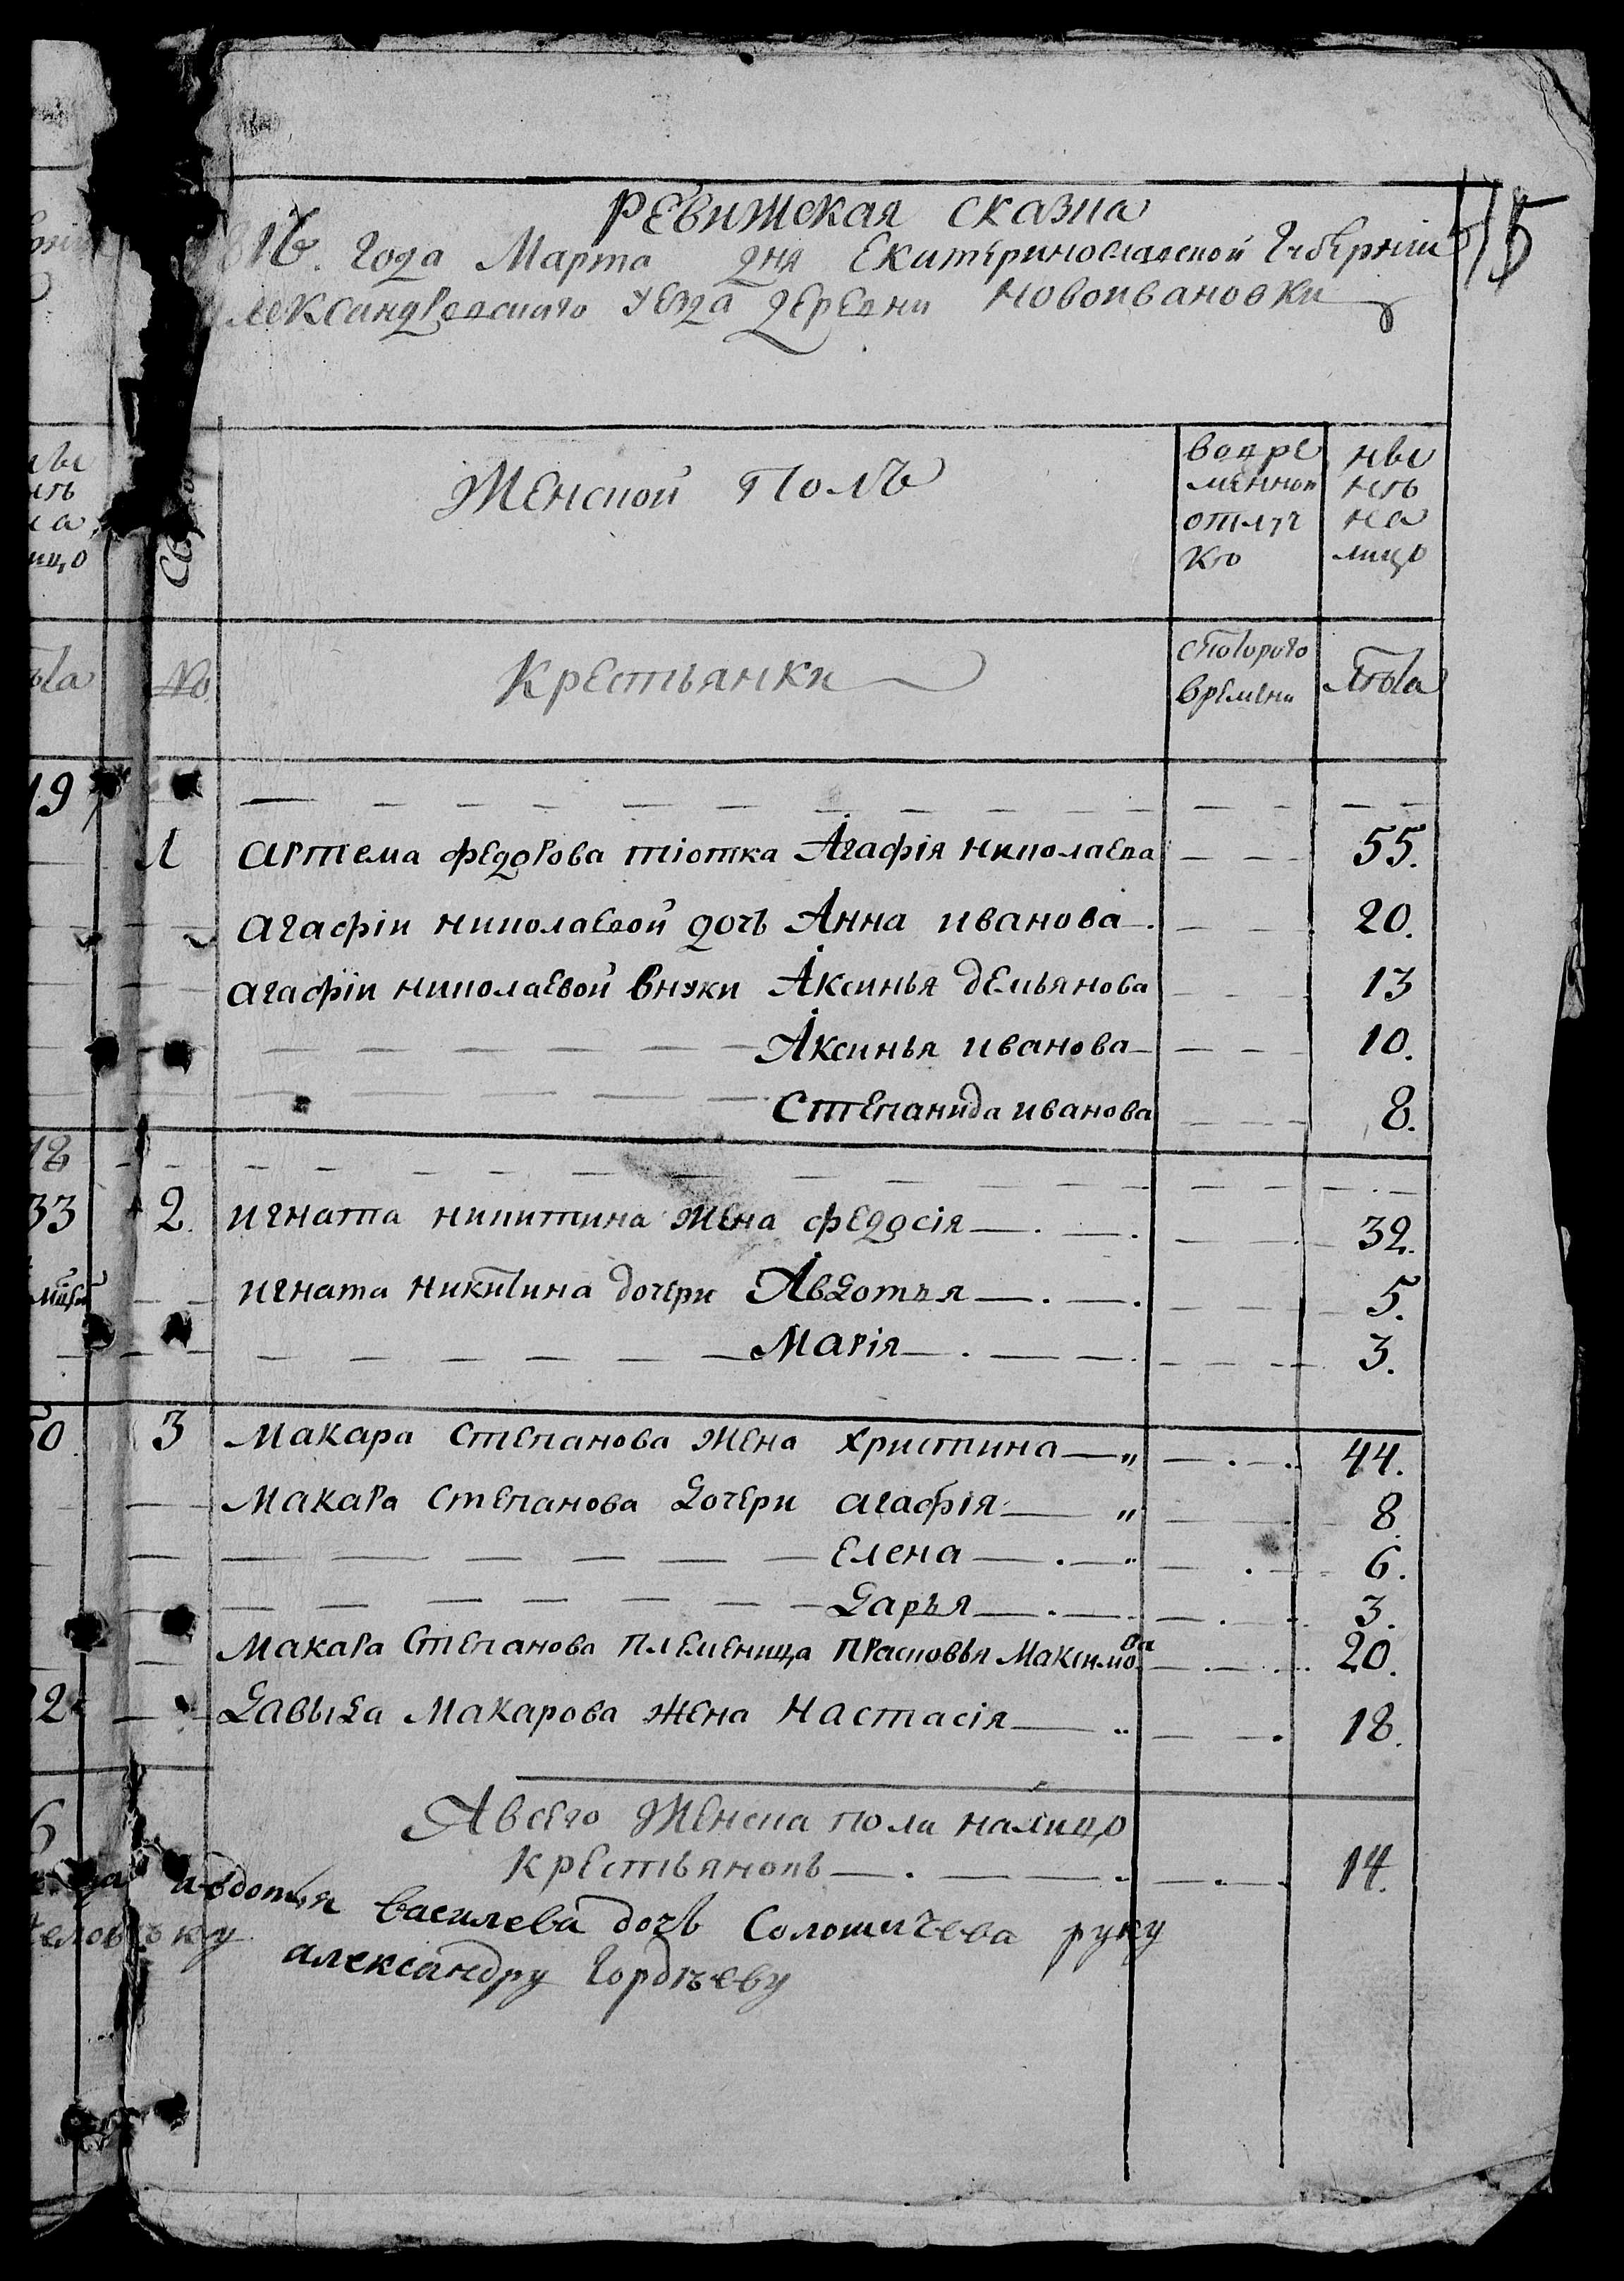 РЕВИЖСКАЯ СКАЗКА
1816. Года Марта дня Екатеринославской Губернии
Александровскаго Уезда деревни Новоивановки
515
Женской Полъ
вовре
менной
отлуч
кѣ
ныі
нѣ
на
лицо
№
Крестьянки
скотораго
времени
лѣта
19
1 Артема Федорова тіотка Агафія Николаева 55.
Агафіи Николаевой дочъ Анна Иванова 20.
Агафіи Николаевой внуки Аксинья Демьянова 13
Аксинья Иванова 10.
Степанида Иванова 8.
18
33 2. Игната Никитина жена Федосія 32.
Игната Никитина дочери Авдотья 5.
Марія 3.
50. 3 Макара Степанова жена Христина „ 44.
Макара Степанова дочери Агафія „ 8
Елена „ 6.
Дарья 3.
Макара Степанова племеница Прасковья Максимова 20.
Давыда Макарова жена Настасія „ 18.
Авсего женска пола налицо
Крестьянокъ 14.
Авдотья Василева дочъ Солошичева руку
Александру Гордѣеву